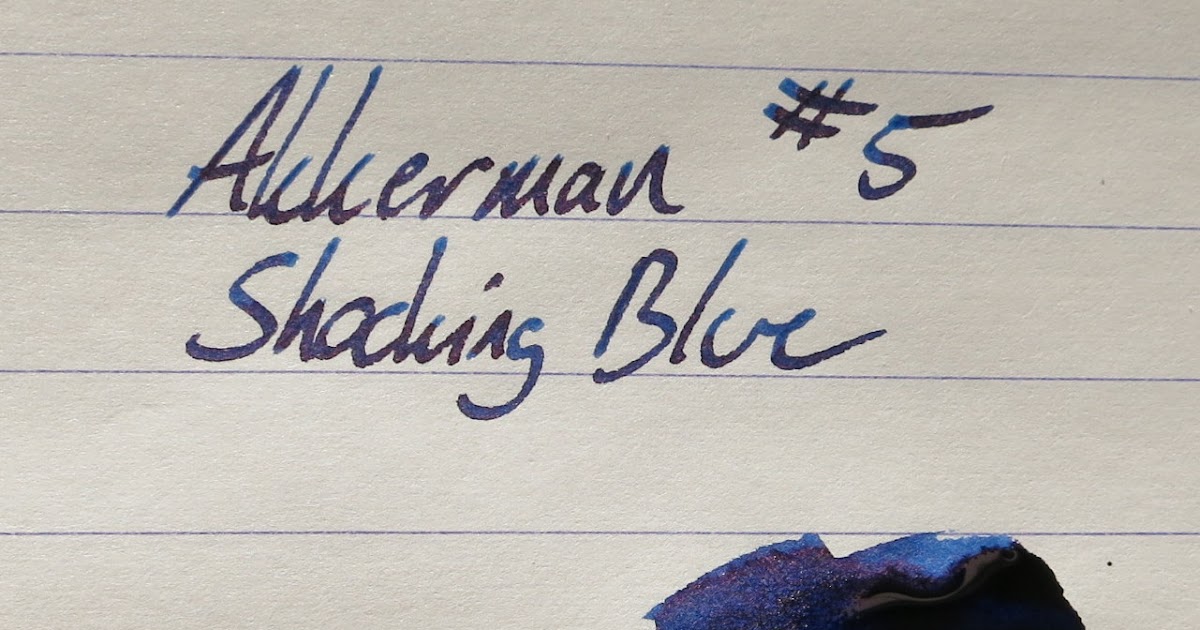 Akkerman #5
Shocking Blue